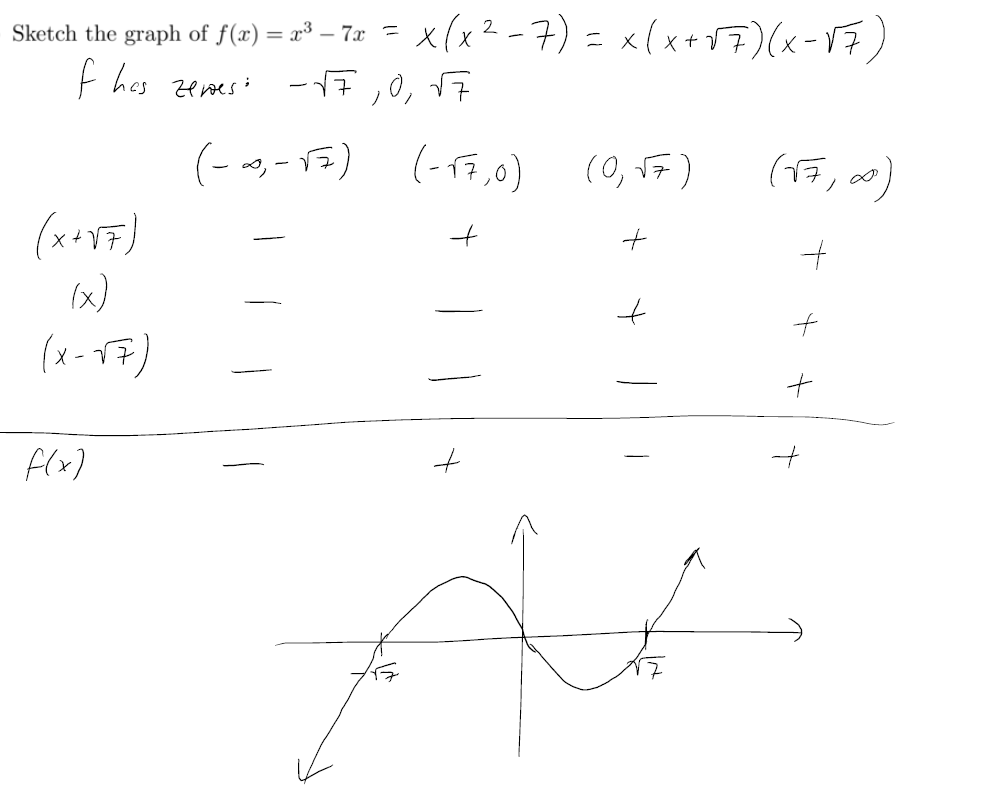 Sketch the graph of f(x) = x³ – 7x = x(x² – 7) = x(x+√7)(x–√7)
f has zeroes: –√7, 0, √7
(–∞, –√7) (–√7, 0) (0, √7) (√7, ∞)
(x+√7) — + + +
(x) — — + +
(x–√7) — — — +
f(x) — + – +
–√7 √7